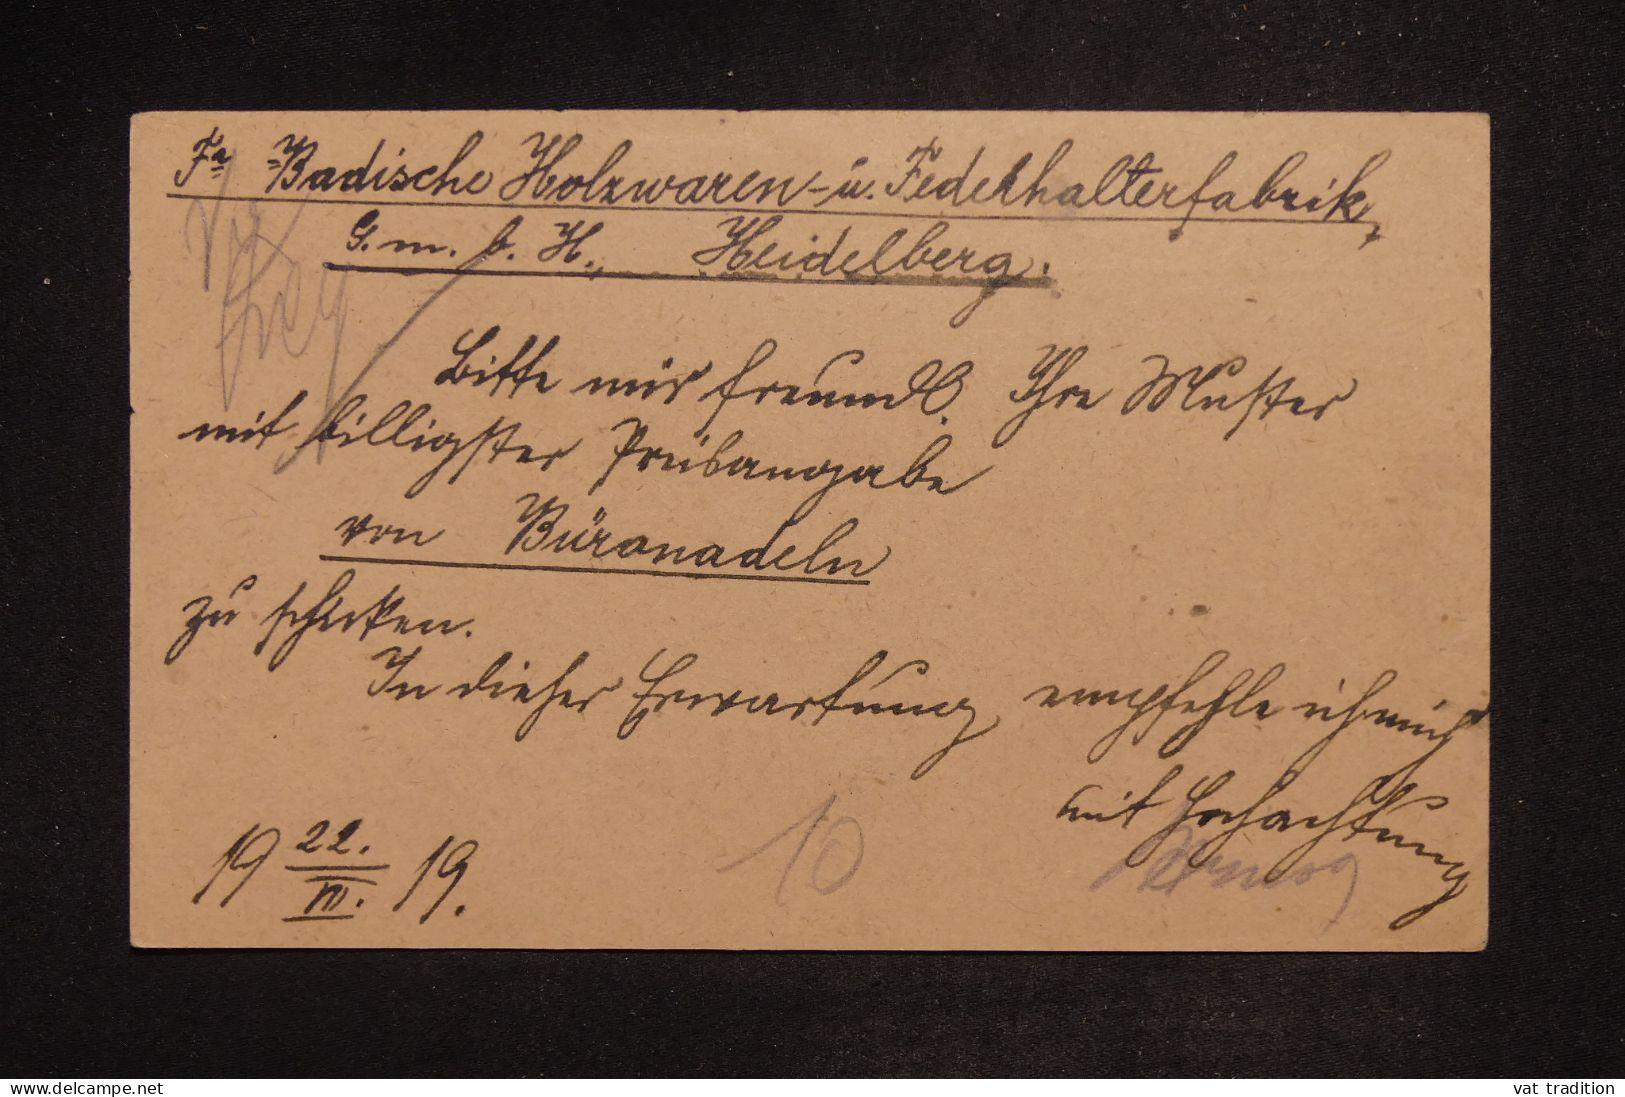 Fa Badische Holzwaren- u. Federhalterfabrik,
G. m. b. H., Heidelberg.
Bitte mir freundl. Ihre Muster
mit billigster Preisangabe
von Büronadeln
zu schicken.
In dieser Erwartung, empfehle ich mich
mit Hochachtung
19 22./III. 19.
10
www.delcampe.net
vat tradition